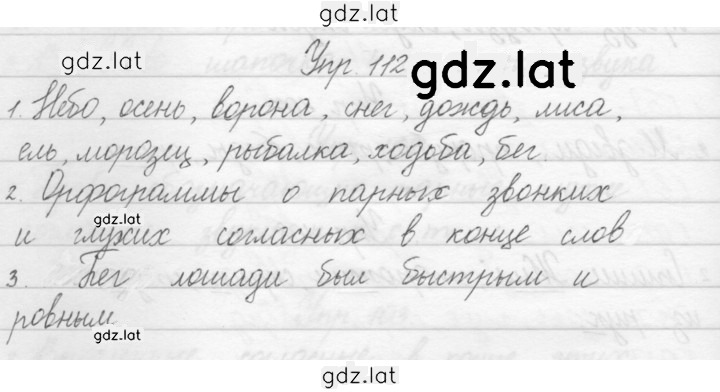 gdz.lat
gdz.lat
Упр. 112
gdz.lat
1. Небо, осень, ворона, снег, дождь, лиса,
ель, морозец, рыбалка, ходьба, бег.
2. Орфограммы о парных звонких
gdz.lat
и глухих согласных в конце слов
3. Бег лошади был быстрым и
ровным
gdz.lat
gdz.lat